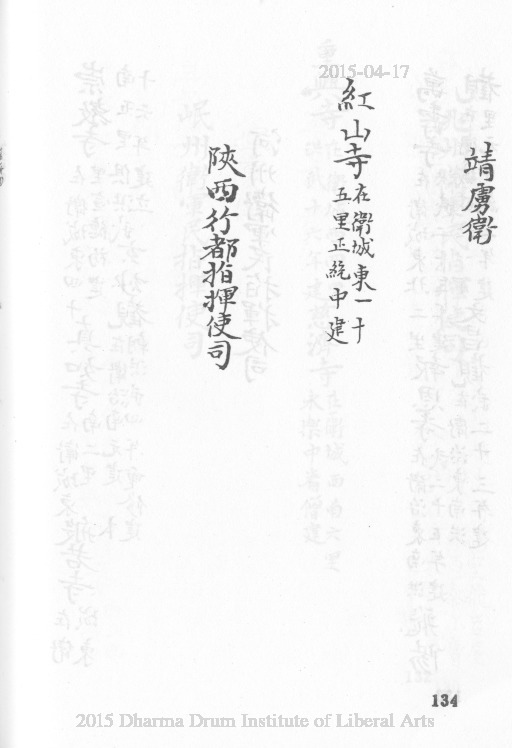 2015-04-17
靖虜衛
紅山寺在衛城東一十
五里正統中建
陝西行都指揮使司
134
2015 Dharma Drum Institute of Liberal Arts